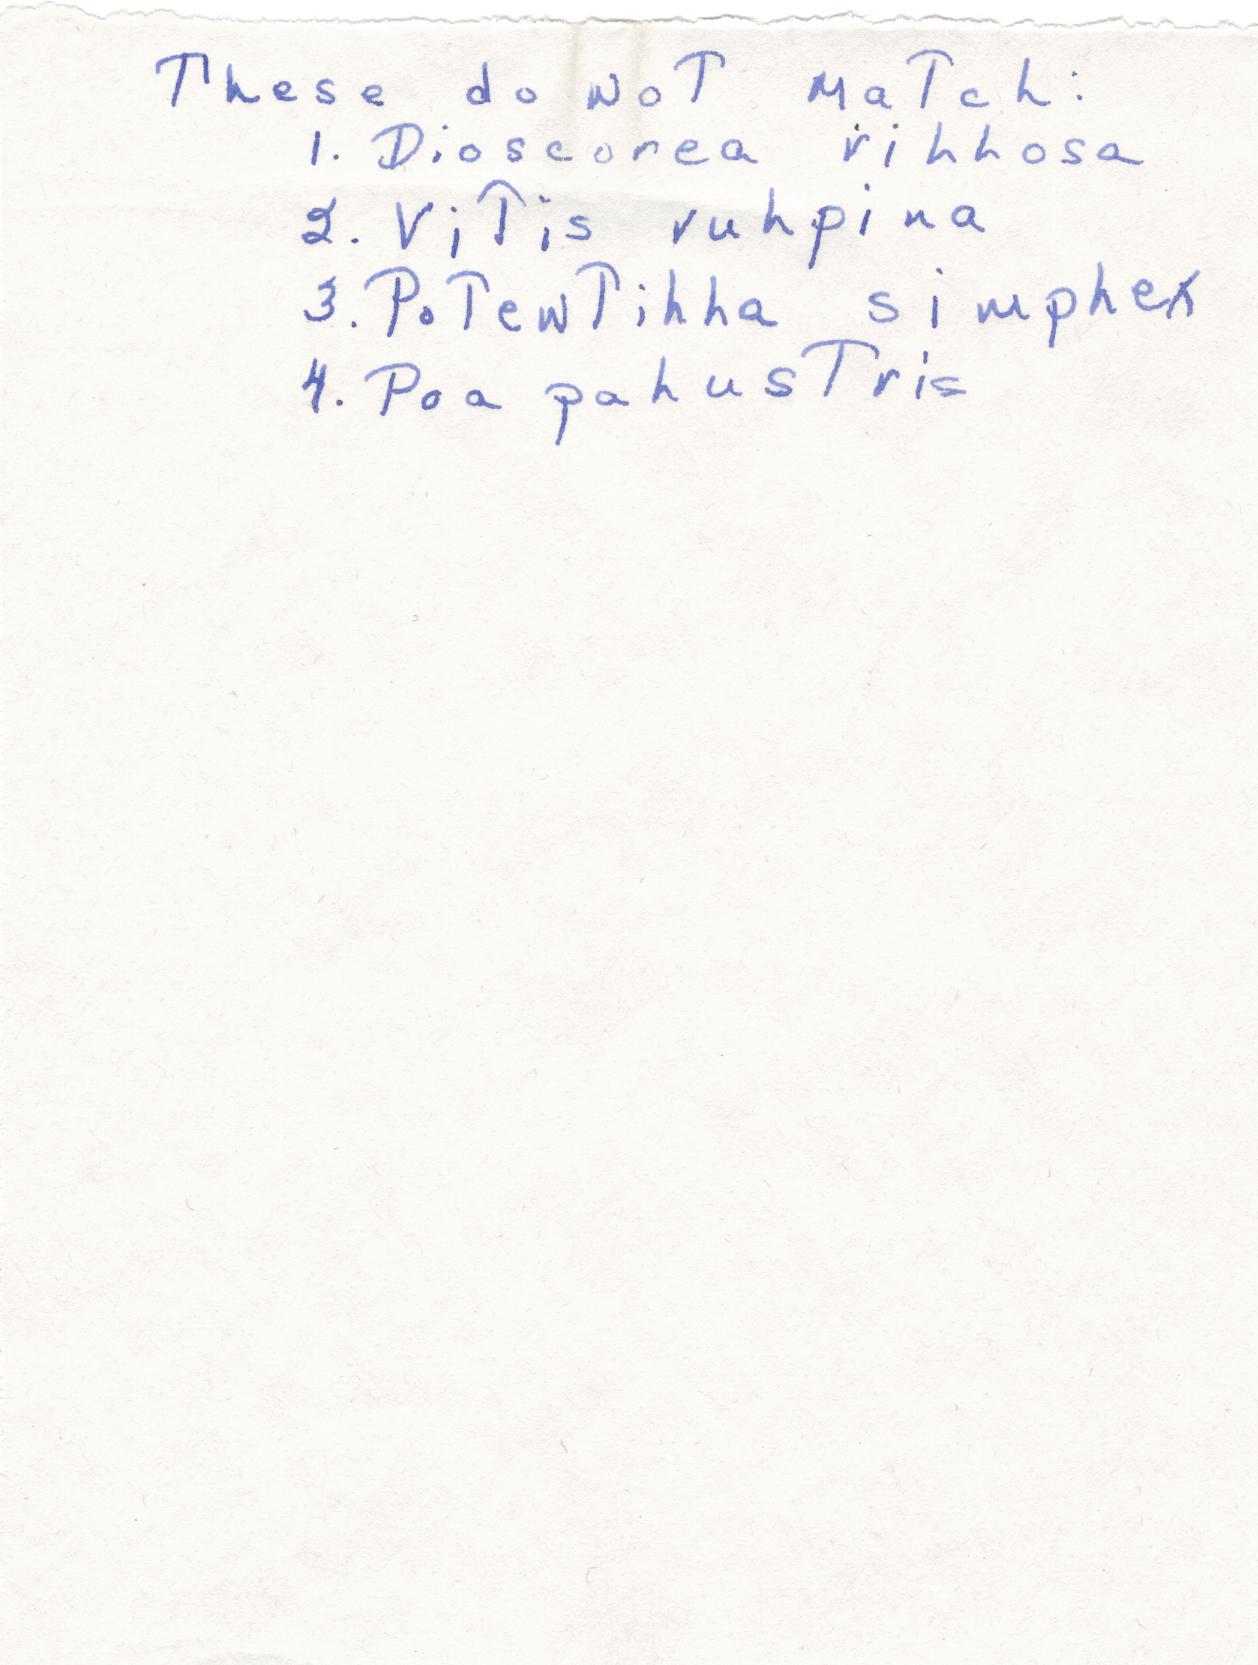 These do not match:
1. Dioscorea villosa
2. Vitis vulpina
3. Potentilla simplex
4. Poa palustris